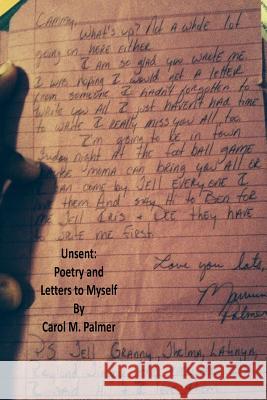 Cammy,
What's up? Not a whole lot
going on here either.
I am so glad you wrote me
I was hoping I would get a letter
from someone I hadn't forgotten to
write you all I just haven't had time
to write I really miss you all, too.
I'm going to be in town
Friday night at the foot ball game
mama can bring you all or
can come by Tell everyone I
love them And say Hi to Ben for
me Tell Iris & Dee they have
to write me first.
Love you lots,
Palmer
Unsent:
Poetry and
Letters to Myself
By
Carol M. Palmer
P.S Tell Granny, Thelma, Latonya,